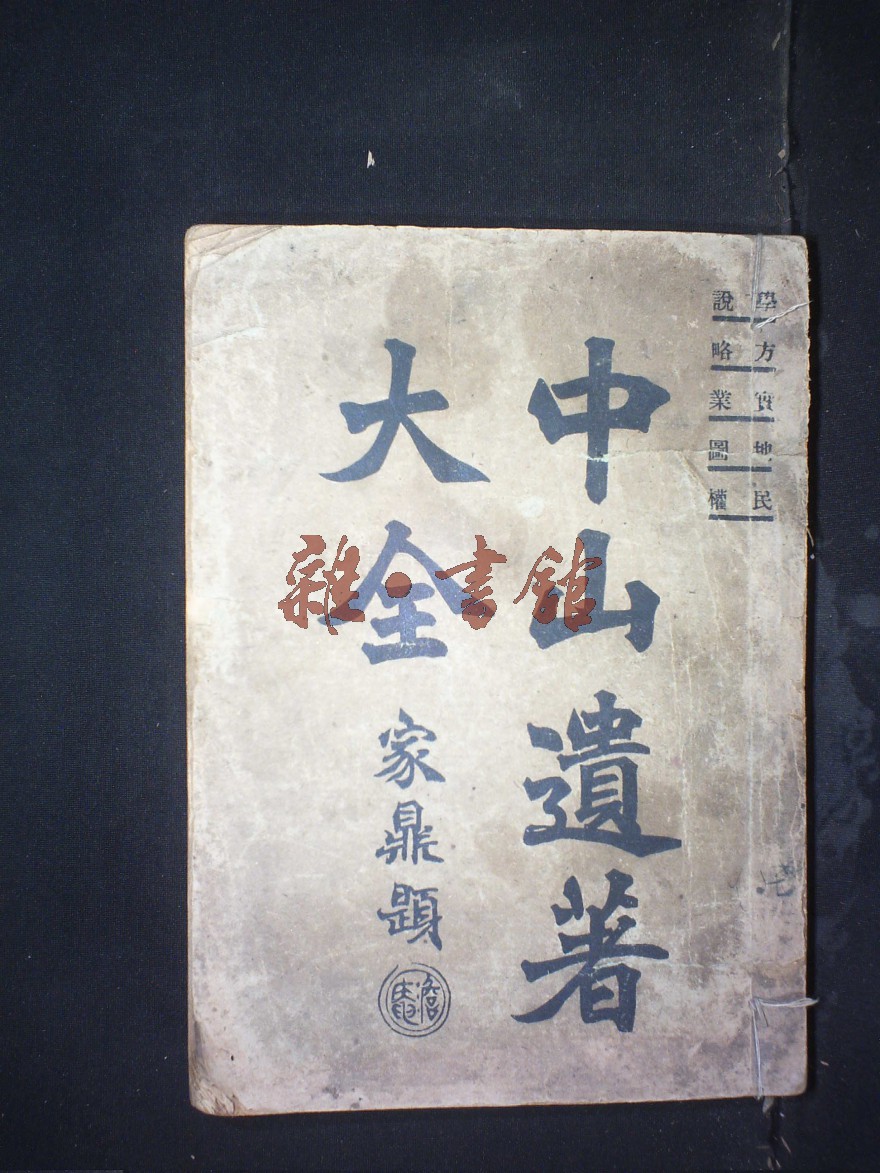 學說
方略
實業
地圖
民權
中山遺著
大全
家鼎題
雜·書館